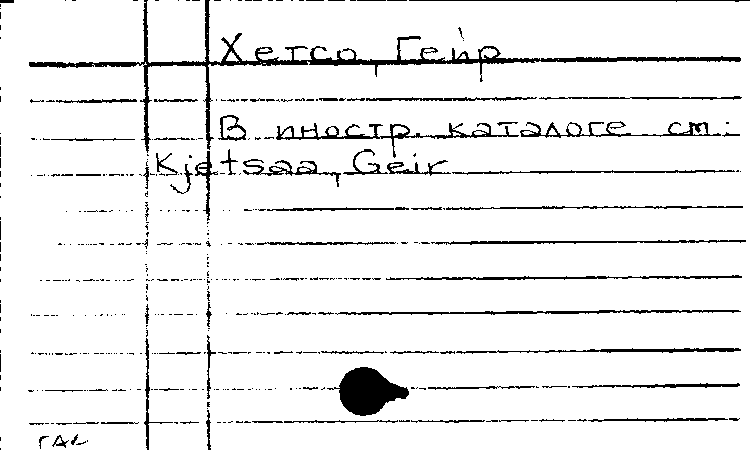 Хетсо, Гейр
В иностр. каталоге см:
Kjetsaa, Geir